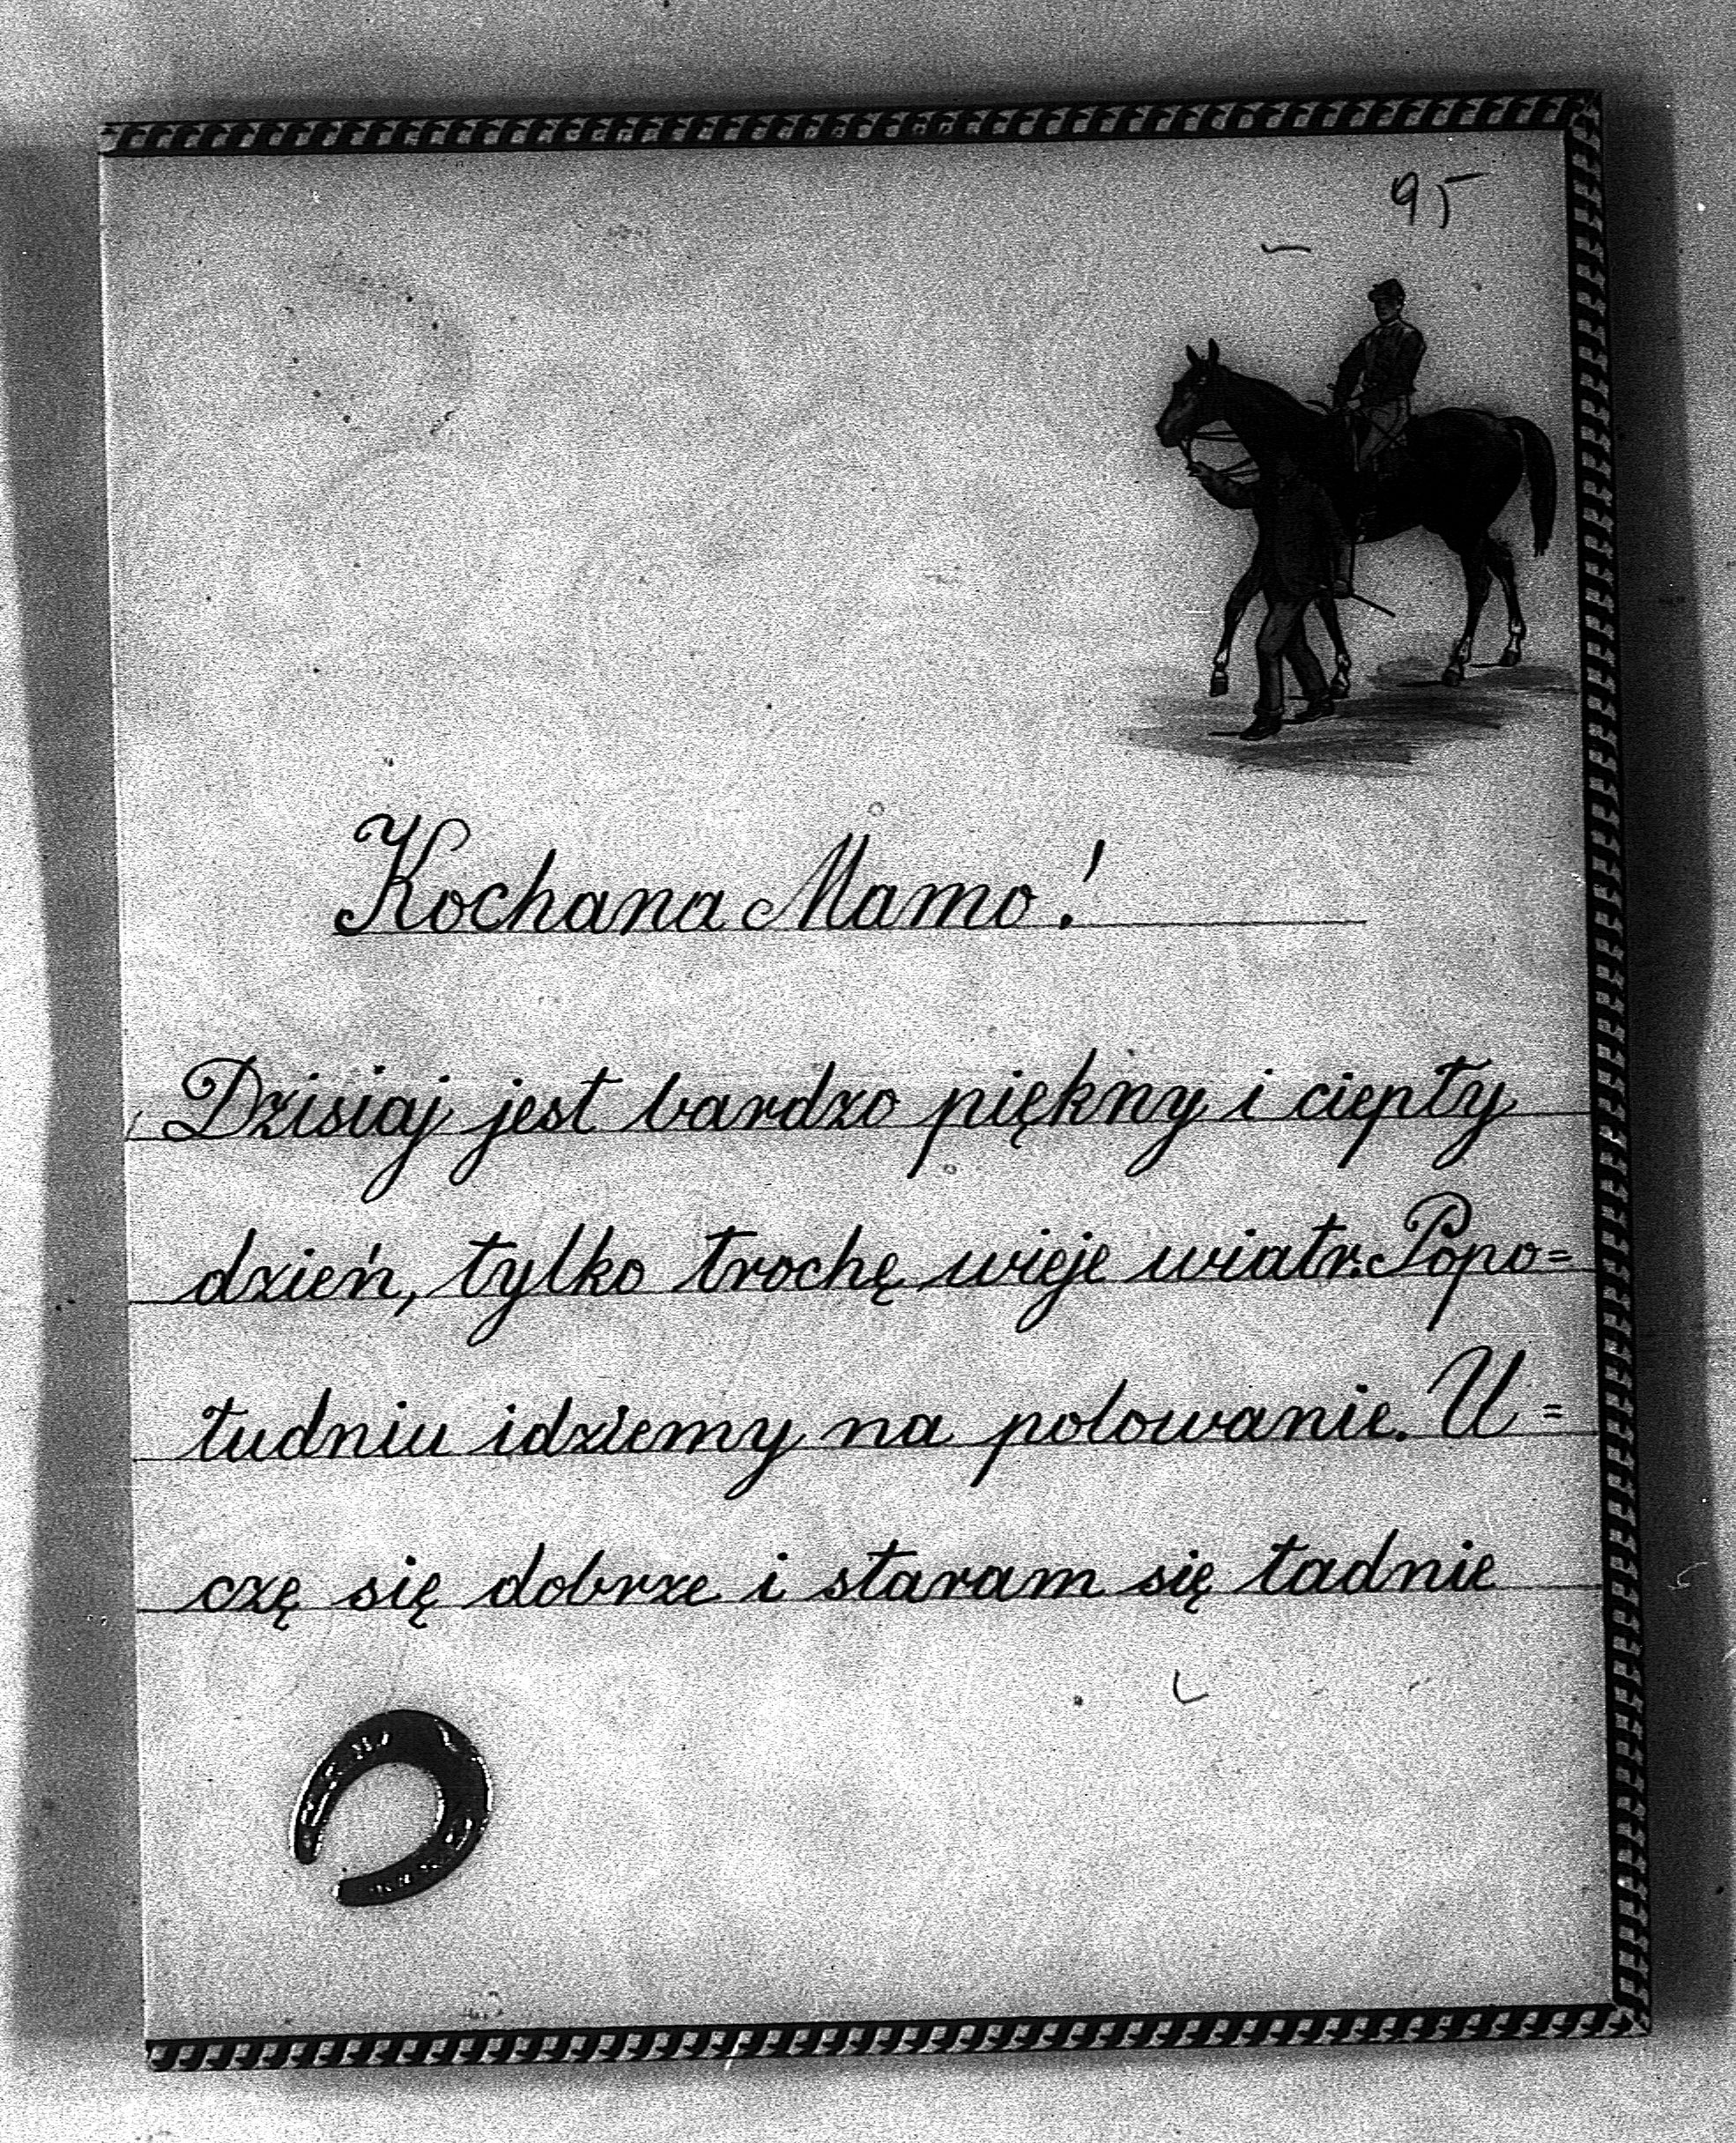 95
Kochana Mamo!
Dzisiaj jest bardzo piękny i ciepły
dzień, tylko trochę wieje wiatr. Popo=
łudniu idziemy na polowanie. U=
czę się dobrze i staram się ładnie